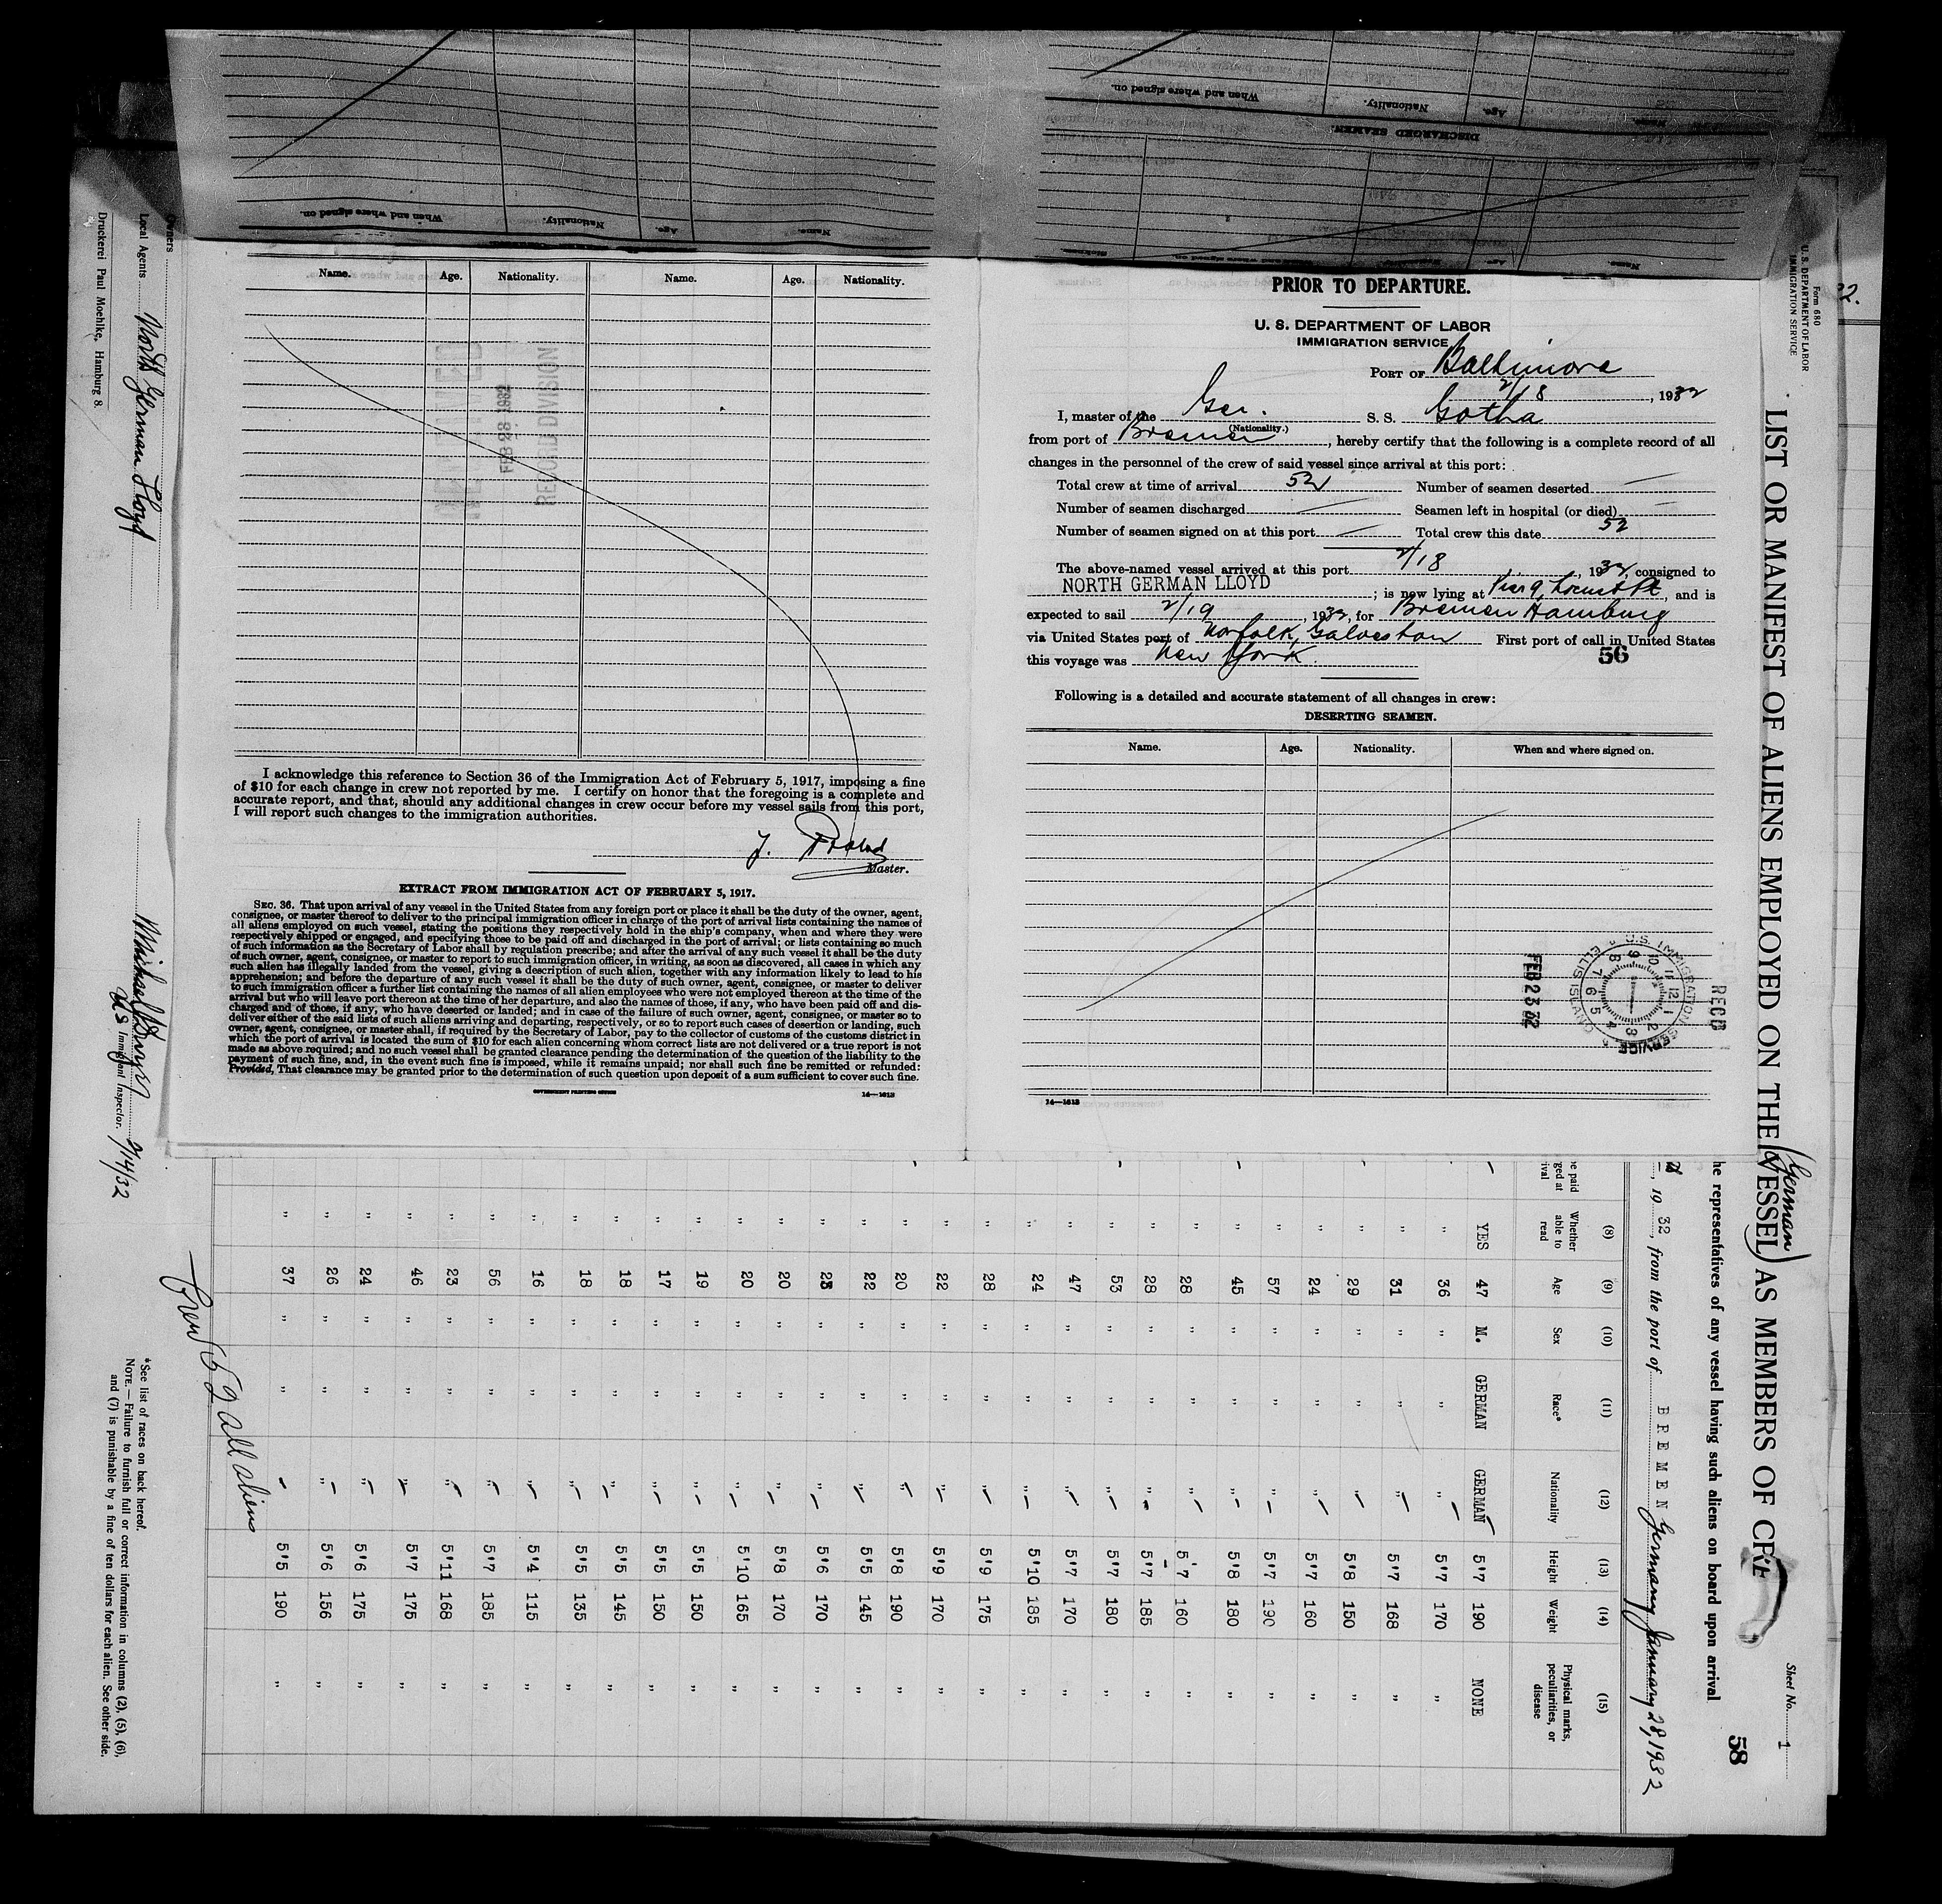 Name. Age. Nationality. Name. Age. Nationality.
RECORD DIVISION
FEB 23 1932
I acknowledge this reference to Section 36 of the Immigration Act of February 5, 1917, imposing a fine
of $10 for each change in crew not reported by me. I certify on honor that the foregoing is a complete and
accurate report, and that, should any additional changes in crew occur before my vessel sails from this port,
I will report such changes to the immigration authorities.
Master.
EXTRACT FROM IMMIGRATION ACT OF FEBRUARY 5, 1917.
SEC. 36. That upon arrival of any vessel in the United States from any foreign port or place it shall be the duty of the owner, agent,
consignee, or master thereof to deliver to the principal immigration officer in charge of the port of arrival lists containing the names of
all aliens employed on such vessel, stating the positions they respectively hold in the ship's company, when and where they were
respectively shipped or engaged, and specifying those to be paid off and discharged in the port of arrival; or lists containing so much
of such information as the Secretary of Labor shall by regulation prescribe; and after the arrival of any such vessel it shall be the duty
of such owner, agent, consignee, or master to report to such immigration officer, in writing, as soon as discovered, all cases in which any
such alien has illegally landed from the vessel, giving a description of such alien, together with any information likely to lead to his
apprehension; and before the departure of any such vessel it shall be the duty of such owner, agent, consignee, or master to deliver
to such immigration officer a further list containing the names of all alien employees who were not employed thereon at the time of the
arrival but who will leave port thereon at the time of her departure, and also the names of those, if any, who have been paid off and dis-
charged and of those, if any, who have deserted or landed; and in case of the failure of such owner, agent, consignee, or master so to
deliver either of the said lists of such aliens arriving and departing, respectively, or so to report such cases of desertion or landing, such
owner, agent, consignee, or master shall, if required by the Secretary of Labor, pay to the collector of customs of the customs district in
which the port of arrival is located the sum of $10 for each alien concerning whom correct lists are not delivered or a true report is not
made as above required; and no such vessel shall be granted clearance pending the determination of the question of the liability to the
payment of such fine, and, in the event such fine is imposed, while it remains unpaid; nor shall such fine be remitted or refunded:
Provided, That clearance may be granted prior to the determination of such question upon deposit of a sum sufficient to cover such fine.
GOVERNMENT PRINTING OFFICE
14—1613
PRIOR TO DEPARTURE.
U. S. DEPARTMENT OF LABOR
IMMIGRATION SERVICE
PORT OF Baltimore
2/18, 1932
I, master of the Ger. S. S. Gotha
(Nationality.)
from port of Bremen, hereby certify that the following is a complete record of all
changes in the personnel of the crew of said vessel since arrival at this port:
Total crew at time of arrival 52 Number of seamen deserted
Number of seamen discharged Seamen left in hospital (or died)
Number of seamen signed on at this port Total crew this date 52
The above-named vessel arrived at this port 2/18, 1932, consigned to
NORTH GERMAN LLOYD; is now lying at Pier 9, Locust Pt, and is
expected to sail 2/19, 1932, for Bremen Hamburg
via United States port of Norfolk, Galveston First port of call in United States
this voyage was New York.
56
Following is a detailed and accurate statement of all changes in crew:
DESERTING SEAMEN.
Name. Age. Nationality. When and where signed on.
REC'D
U.S. IMMIGRATION SERVICE ELLIS ISLAND
FEB 23 32
14—1613
When and where signed on. Nationality. Age. Name.
DISCHARGED SEAMEN.
When and where signed on. Nationality. Age. Name.
Form 680
U. S. DEPARTMENT OF LABOR
IMMIGRATION SERVICE
Sheet No. 1
LIST OR MANIFEST OF ALIENS EMPLOYED ON THE (German VESSEL) AS MEMBERS OF CRE
58
he representatives of any vessel having such aliens on board upon arrival
, 19 32, from the port of BREMEN Germany January 28, 1932
(8) (9) (10) (11) (12) (13) (14) (15)
Whether able to read Age Sex Race* Nationality Height Weight Physical marks, peculiarities, or disease
YES 47 M. GERMAN GERMAN 5'7 190 NONE
" 36 " " " 5'7 170 "
" 31 " " " 5'7 168 "
" 29 " " " 5'8 150 "
" 24 " " " 5'7 160 "
" 57 " " " 5'7 190 "
" 45 " " " 5'8 180 "
" 28 " " " 5'7 160 "
" 28 " " " 5'7 185 "
" 53 " " " 5'7 180 "
" 47 " " " 5'7 170 "
" 24 " " " 5'10 185 "
" 28 " " " 5'9 175 "
" 22 " " " 5'9 170 "
" 20 " " " 5'8 190 "
" 22 " " " 5'5 145 "
" 23 " " " 5'6 170 "
" 20 " " " 5'8 170 "
" 20 " " " 5'10 165 "
" 19 " " " 5'5 150 "
" 17 " " " 5'5 150 "
" 18 " " " 5'5 145 "
" 18 " " " 5'5 135 "
" 16 " " " 5'4 115 "
" 56 " " " 5'7 185 "
" 23 " " " 5'11 168 "
" 46 " " " 5'7 175 "
" 24 " " " 5'6 175 "
" 26 " " " 5'6 156 "
" 37 " " 5'5 190 "
Crew 52 all aliens
Owners
Local Agents North German Lloyd
Druckerei Paul Moehlke, Hamburg 8.
US Immigrant Inspector. 2/14/32
*See list of races on back hereof.
NOTE.—Failure to furnish full or correct information in columns (2), (5), (6),
and (7) is punishable by a fine of ten dollars for each alien. See other side.